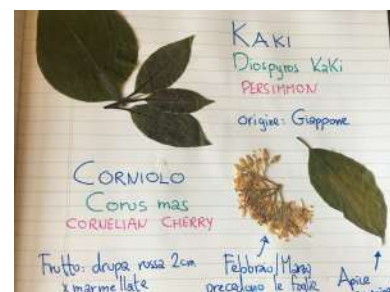 KAKI
Diospyros Kaki
PERSIMMON
origine: Giappone
CORNIOLO
Corus mas
CORNELIAN CHERRY
Frutto: drupa rossa 2cm
x marmellate
Febbraio/Marzo
precedono le foglie
Apice